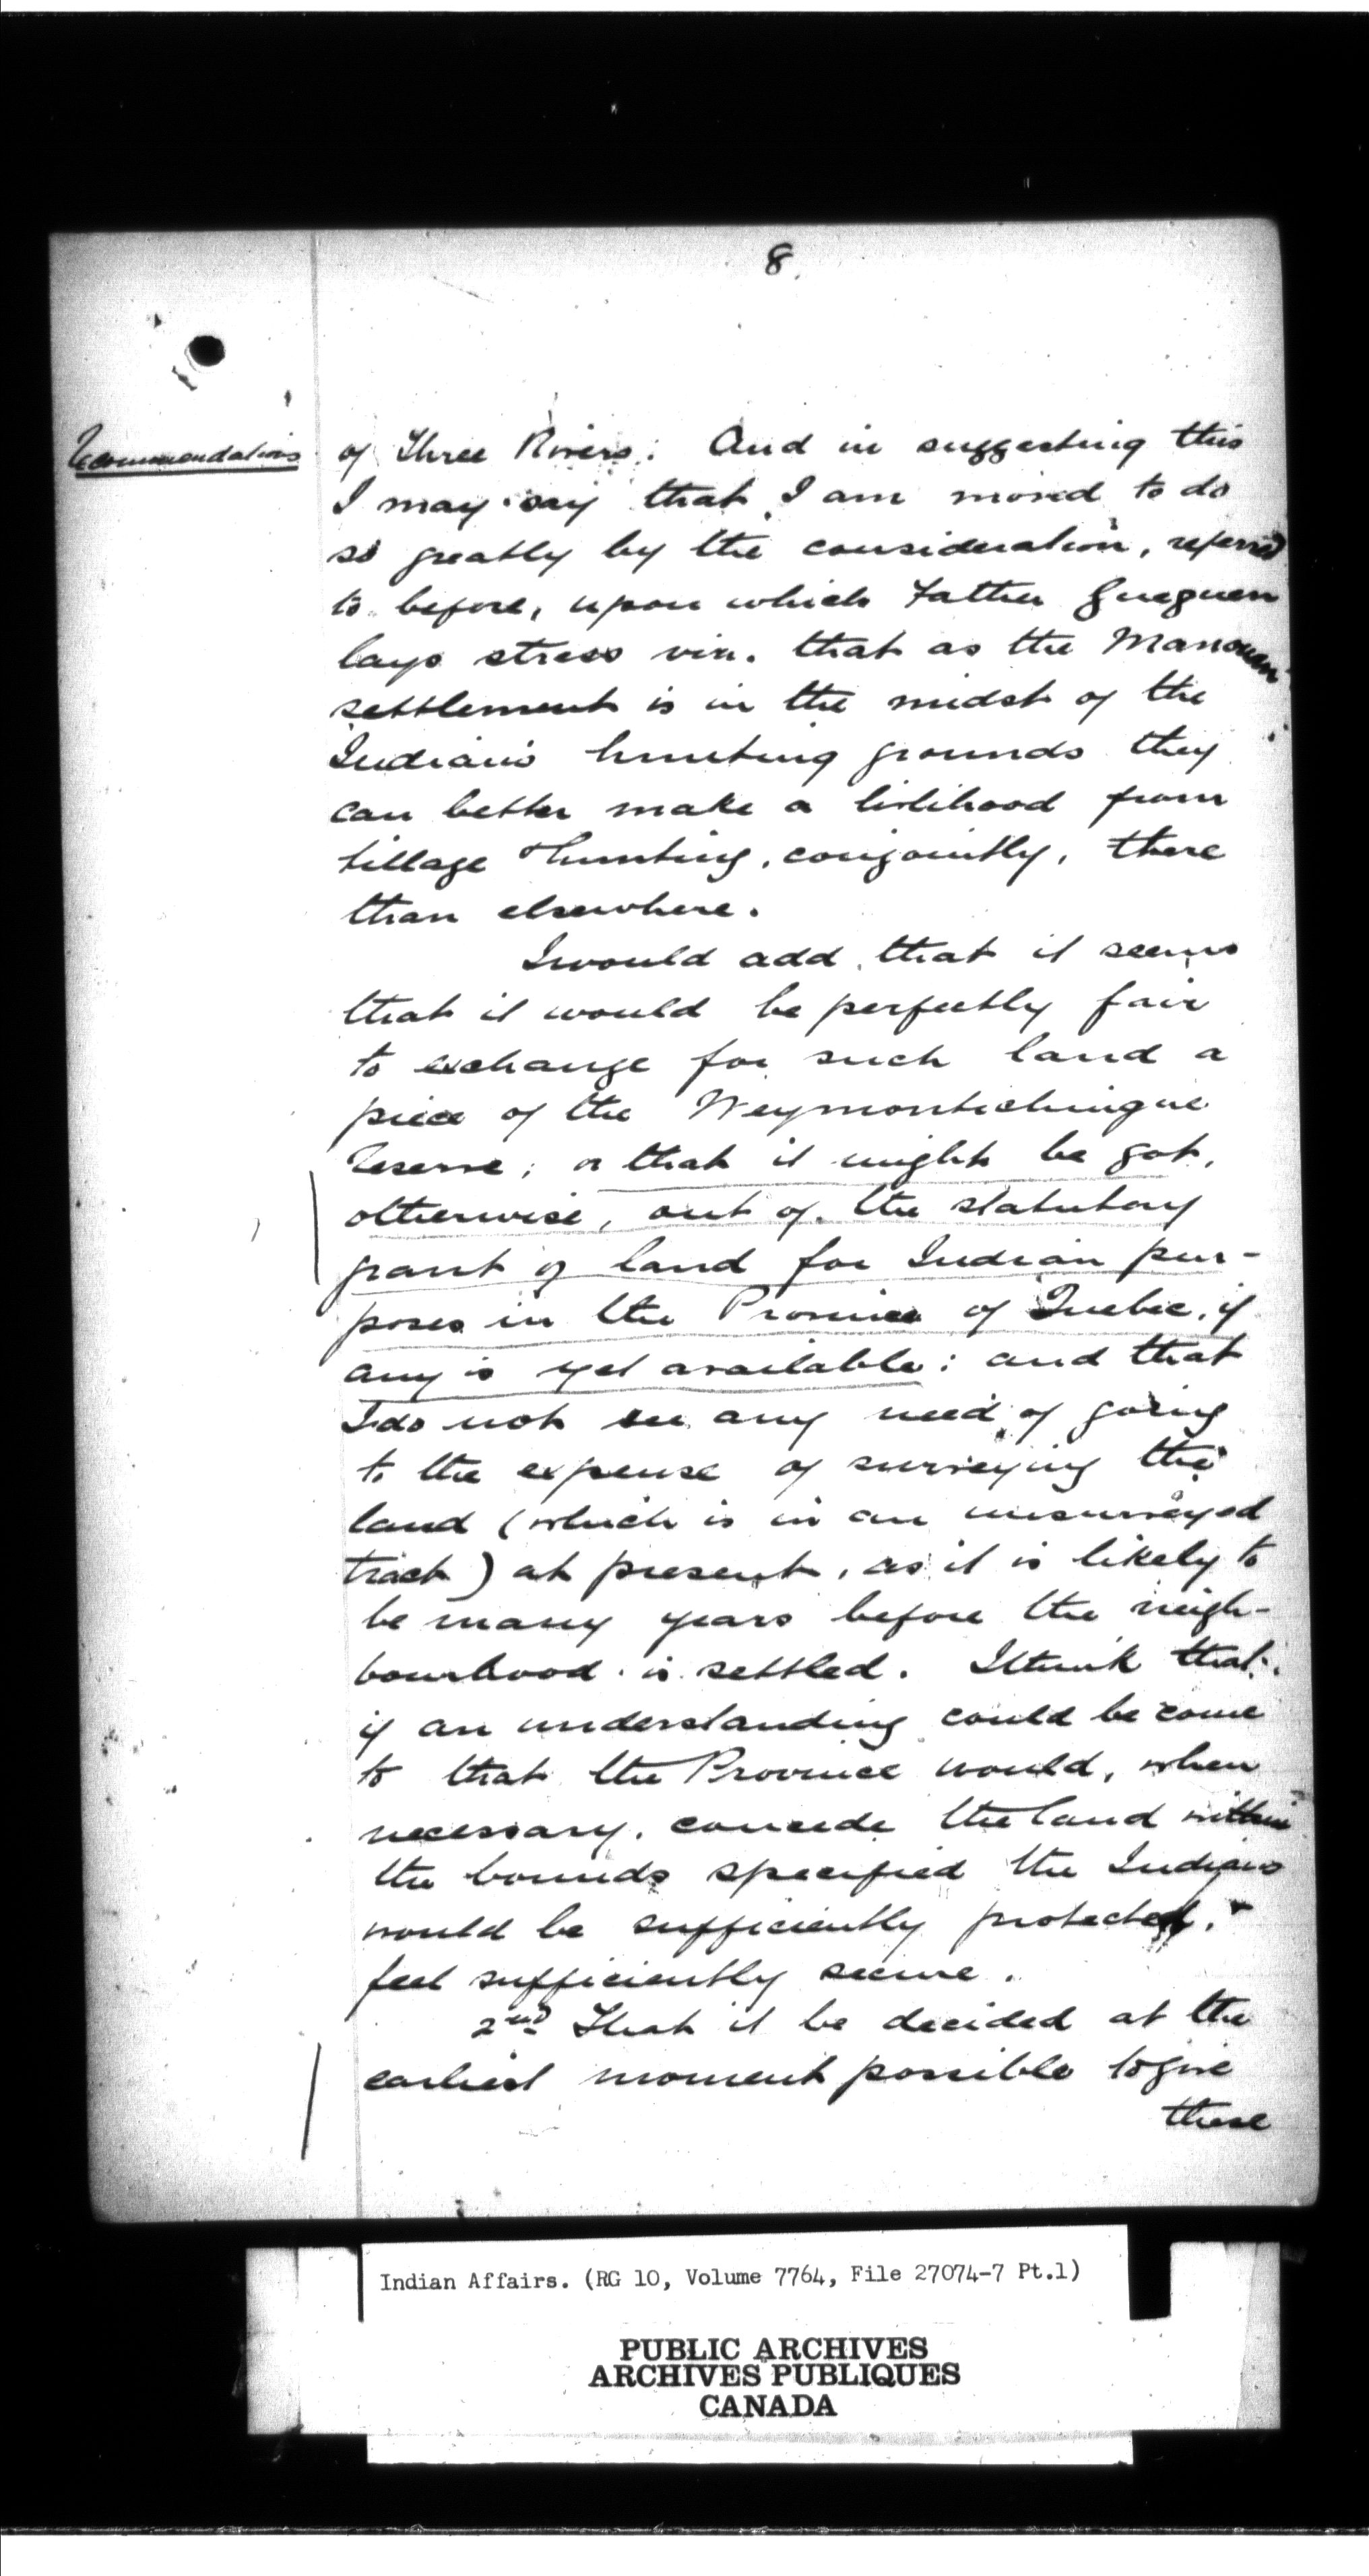 8.
Recommendations
of Three Rivers: And in suggesting this
I may say that I am moved to do
so greatly by the consideration, referred
to before, upon which Father Gueguen
lays stress viz. that as the Manouan
settlement is in the midst of the
Indian's hunting grounds they
can better make a livlihood from
tillage & hunting, conjointly, there
than elsewhere.
I would add that it seems
that it would be perfectly fair
to exchange for such land a
piece of the Weymontichingue
Reserve; or that it might be got,
otherwise, out of the statutory
grant of land for Indian pur-
poses in the Province of Quebec, if
any is yet available: and that
I do not see any need of going
to the expense of surveying the
land (which is in an unsurveyed
tract) at present, as it is likely to
be many years before the neigh-
bourhood is settled. I think that
if an understanding could be come
to that the Province would, when
necessary, concede the land within
the bounds specified the Indians
would be sufficiently protected, &
feel sufficiently secure.
2nd That it be decided at the
earliest moment possible to give
these
Indian Affairs. (RG 10, Volume 7764, File 27074-7 Pt.1)
PUBLIC ARCHIVES
ARCHIVES PUBLIQUES
CANADA